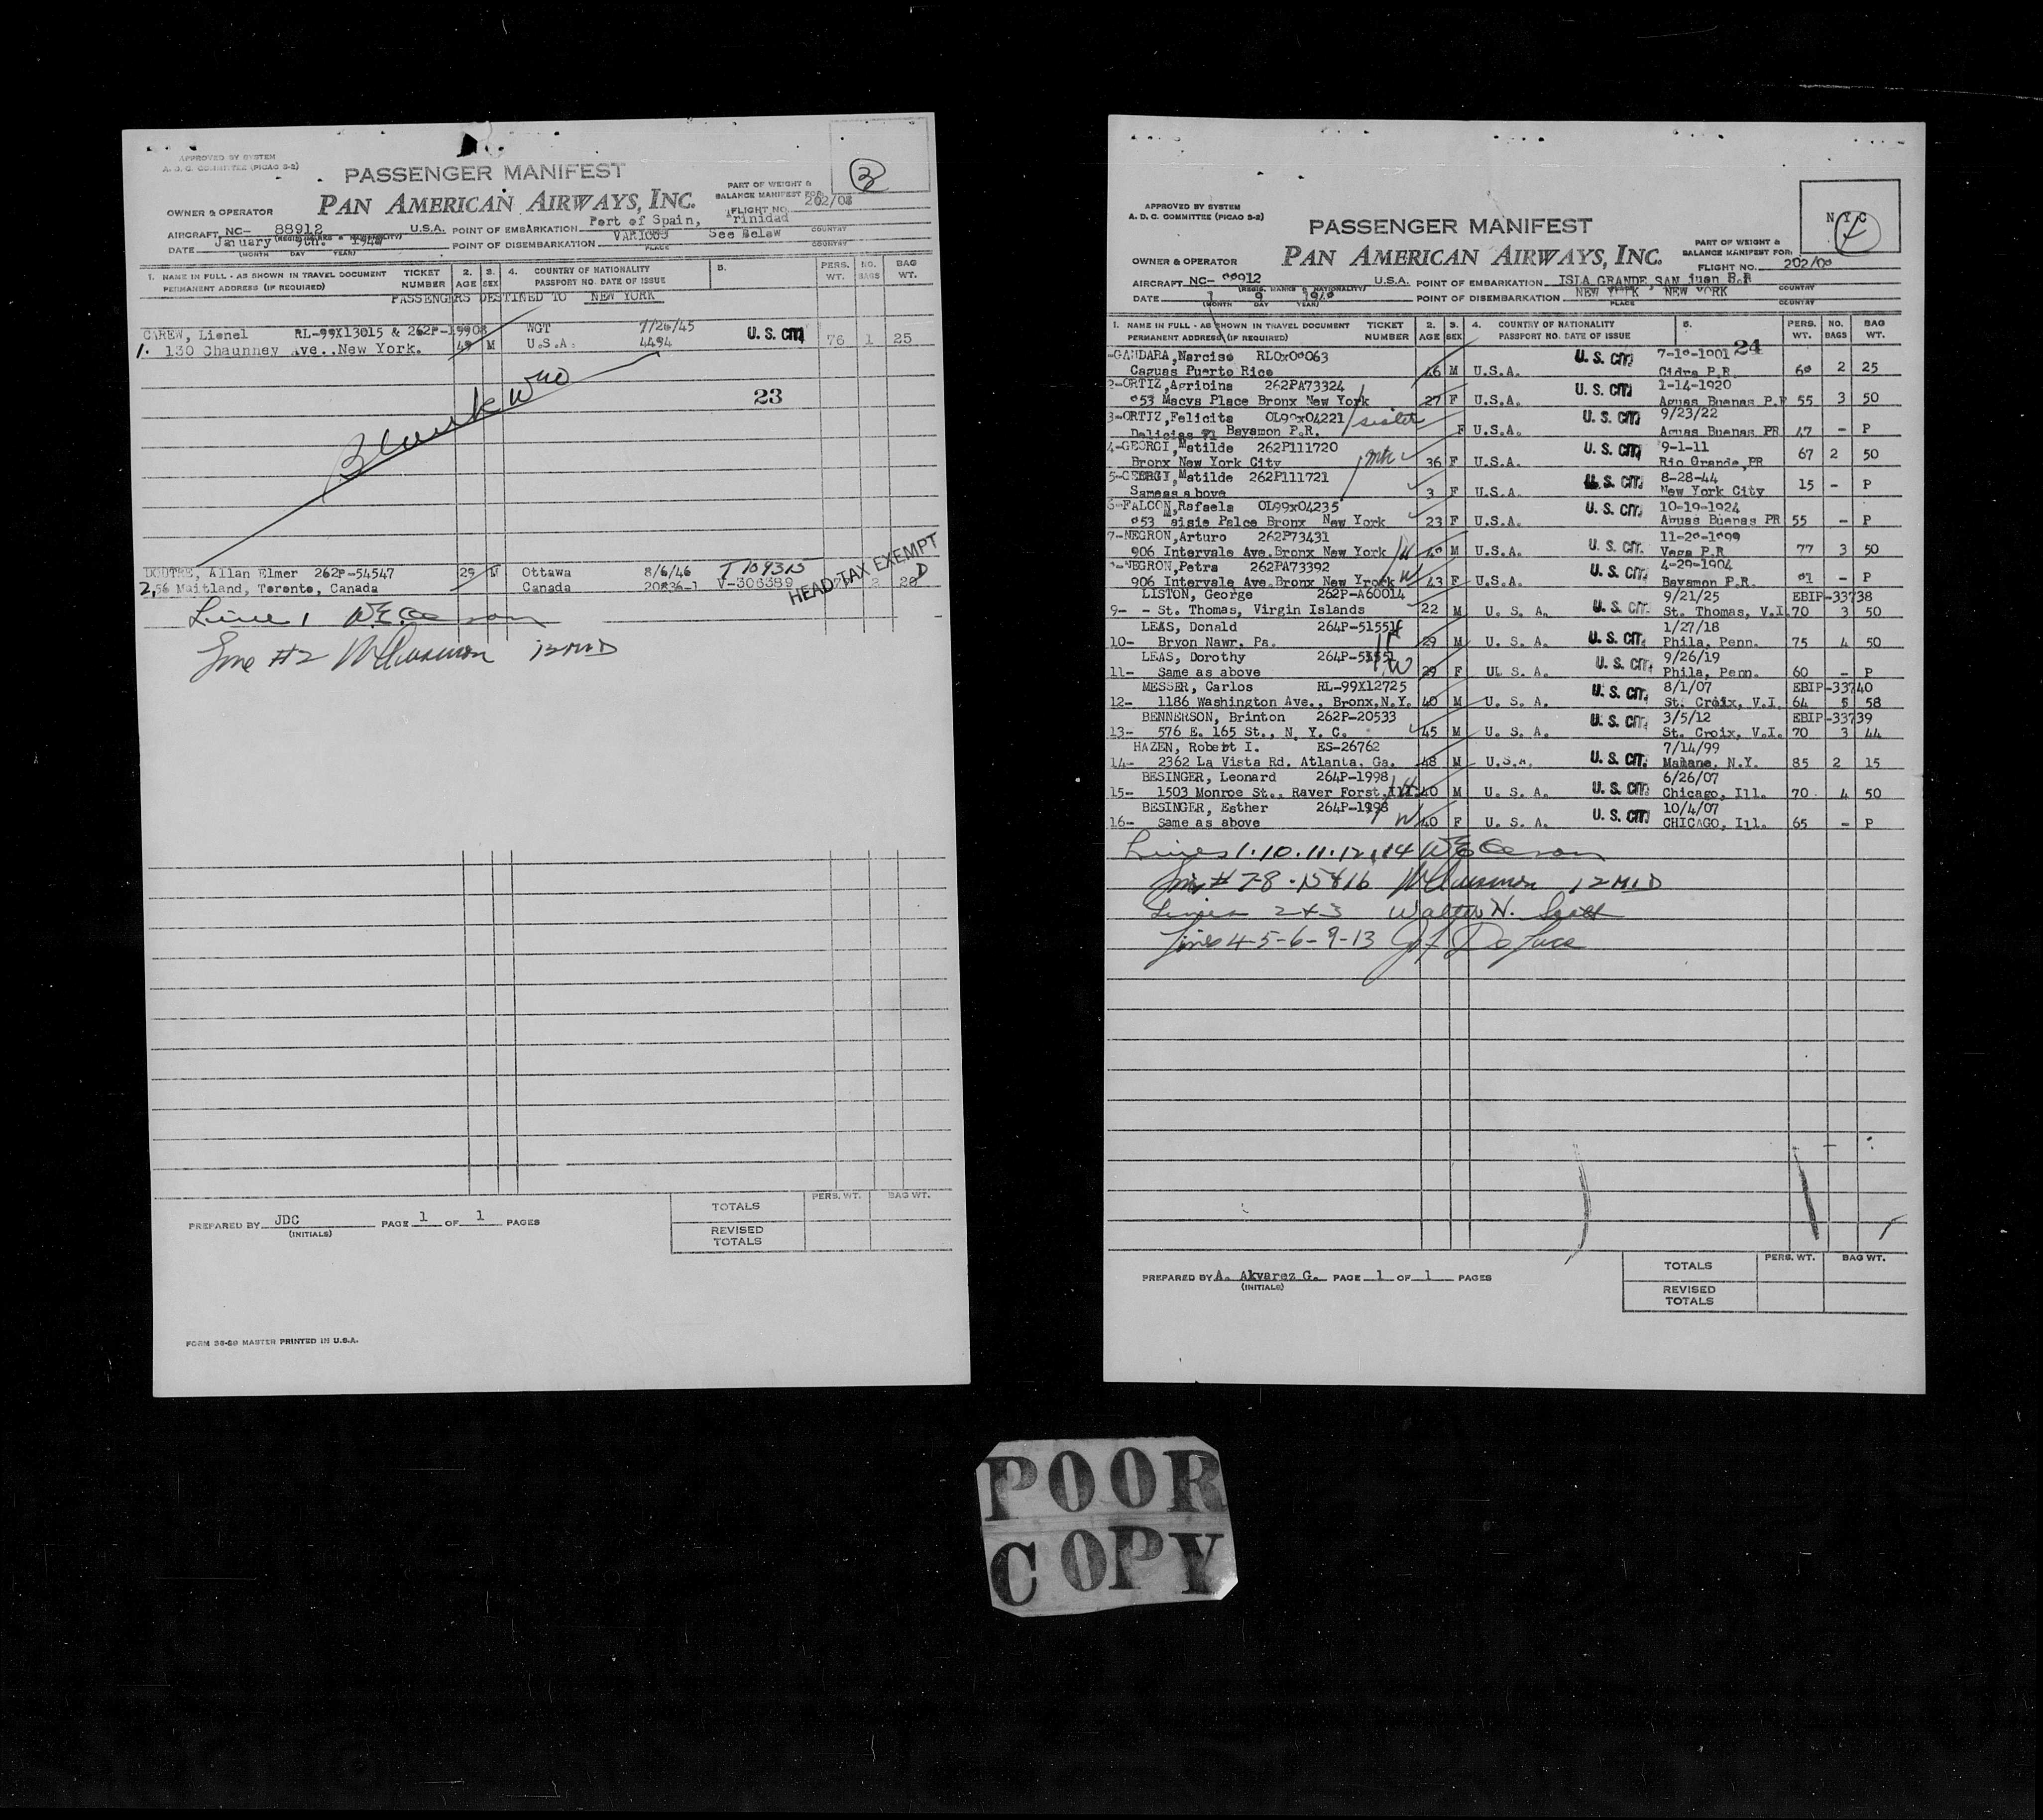 APPROVED BY SYSTEM
A. D. C. COMMITTEE (PICAO S-2)
PASSENGER MANIFEST
3
PAN AMERICAN AIRWAYS, INC.
PART OF WEIGHT &
BALANCE MANIFEST FOR:
FLIGHT NO. 202/08
OWNER & OPERATOR
AIRCRAFT NC- 88912 U.S.A. POINT OF EMBARKATION Port of Spain, Trinidad
(REGIS. MARKS & NATIONALITY) COUNTRY
DATE January 9th. 1948 POINT OF DISEMBARKATION VARIOUS See Below
(MONTH DAY YEAR) PLACE COUNTRY
1. NAME IN FULL - AS SHOWN IN TRAVEL DOCUMENT TICKET 2. 3. 4. COUNTRY OF NATIONALITY 5. PERS. NO. BAG
PERMANENT ADDRESS (IF REQUIRED) NUMBER AGE SEX PASSPORT NO. DATE OF ISSUE WT. BAGS WT.
PASSENGERS DESTINED TO NEW YORK
CAREW, Lionel RL-99X13015 & 262P-19908 WGT 7/26/45 U. S. CIT.
1. 130 Chaunney Ave., New York. 49 M U.S.A. 4494 76 1 25
23
DOUTRE, Allan Elmer 262P-54547 29 M Ottawa 8/6/46 T 109315
2, 56 Maitland, Toronto, Canada Canada 20836-1 V-306389 2 20 D
HEAD TAX EXEMPT
Line 1
Line #2 12 MID
TOTALS PERS. WT. BAG WT.
PREPARED BY JDC PAGE 1 OF 1 PAGES
(INITIALS)
REVISED
TOTALS
FORM 36-89 MASTER PRINTED IN U.S.A.
APPROVED BY SYSTEM
A. D. C. COMMITTEE (PICAO S-2)
N Y C
PASSENGER MANIFEST
PAN AMERICAN AIRWAYS, INC.
PART OF WEIGHT &
BALANCE MANIFEST FOR:
FLIGHT NO. 202/08
OWNER & OPERATOR
AIRCRAFT NC- 88912 U.S.A. POINT OF EMBARKATION ISLA GRANDE, SAN juan P.R
(REGIS. MARKS & NATIONALITY) COUNTRY
DATE 1 9 1948 POINT OF DISEMBARKATION NEW YORK NEW YORK
(MONTH DAY YEAR) PLACE COUNTRY
1. NAME IN FULL - AS SHOWN IN TRAVEL DOCUMENT TICKET 2. 3. 4. COUNTRY OF NATIONALITY 5. PERS. NO. BAG
PERMANENT ADDRESS (IF REQUIRED) NUMBER AGE SEX PASSPORT NO. DATE OF ISSUE WT. BAGS WT.
24
-GANDARA, Narciso RL0x00063 U. S. CIT. 7-10-1001
Caguas Puerto Rico 46 M U.S.A. Cidra P.R. 60 2 25
2-ORTIZ, Agribina 262PA73324 U. S. CIT. 1-14-1920
053 Macys Place Bronx New York 27 F U.S.A. Aguas Buenas P.R 55 3 50
3-ORTIZ, Felicita OL99x04221 sister U. S. CIT. 9/23/22
Delicias 71 Bayamon P.R. F U.S.A. Aguas Buenas PR 47 - P
4-GEORGI, Matilde 262P111720 U. S. CIT. 9-1-11
Bronx New York City 36 F U.S.A. Rio Grande, PR 67 2 50
5-GEORGI, Matilde 262P111721 U. S. CIT. 8-28-44
Sameas above 3 F U.S.A. New York City 15 - P
6-FALCON, Rafaela OL99x04235 U. S. CIT. 10-19-1924
053 aisie Palce Bronx New York 23 F U.S.A. Aguas Buenas PR 55 - P
7-NEGRON, Arturo 262P73431 U. S. CIT. 11-20-1099
906 Intervale Ave. Bronx New York H 40 M U.S.A. Vega P.R 77 3 50
-NEGRON, Petra 262PA73392 U. S. CIT. 4-29-1904
906 Intervale Ave. Bronx New Yrork W 43 F U.S.A. Bayamon P.R. 01 - P
LISTON, George 262P-A60014 9/21/25 EBIP-33738
9- - St. Thomas, Virgin Islands 22 M U. S. A. U. S. CIT. St. Thomas, V.I. 70 3 50
LEAS, Donald 264P-51551 1/27/18
10- Bryon Nawr, Pa. H 29 M U. S. A. U. S. CIT. Phila, Penn. 75 4 50
LEAS, Dorothy 264P-51551 9/26/19
11- Same as above W 29 F UL S. A. U. S. CIT. Phila, Penn. 60 - P
MESSER, Carlos RL-99X12725 8/1/07 EBIP-33740
12- 1186 Washington Ave., Bronx, N.Y. 40 M U. S. A. U. S. CIT. St. Croix, V.I. 64 5 58
BENNERSON, Brinton 262P-20533 3/5/12 EBIP-33739
13- 576 E. 165 St., N. Y. C. 45 M U. S. A. U. S. CIT. St. Croix, V.I. 70 3 44
HAZEN, Robert I. ES-26762 7/14/99
14- 2362 La Vista Rd. Atlanta. Ga. 48 M U.S.A. U. S. CIT. Malane, N.Y. 85 2 15
BESINGER, Leonard 264P-1998 6/26/07
15- 1503 Monroe St., Raver Forst, Ill. H 40 M U. S. A. U. S. CIT. Chicago, Ill. 70 4 50
BESINGER, Esther 264P-1998 10/4/07
16- Same as above W 40 F U. S. A. U. S. CIT. CHICAGO, Ill. 65 - P
Lines 1.10.11.12,14
Line # 7-8-15&16 12 MID
Lines 2&3 Walter H. Scott
Lines 4-5-6-9-13
TOTALS PERS. WT. BAG WT.
PREPARED BY A. Akvarez G. PAGE 1 OF 1 PAGES
(INITIALS)
REVISED
TOTALS
POOR
COPY